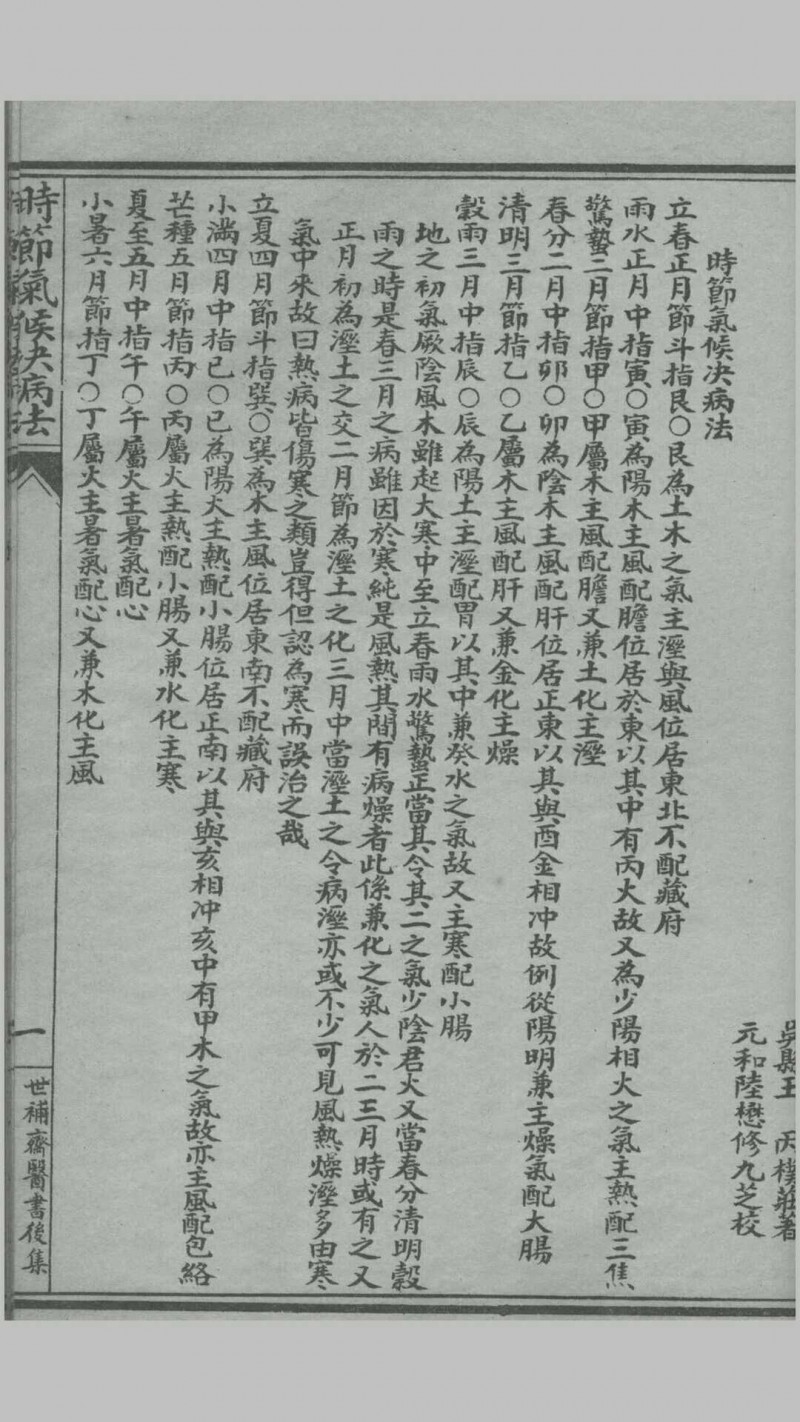 吳縣王 丙樸莊著
元和陸懋修九芝校
時節氣候决病法
立春正月節斗指艮○艮為土木之氣主溼與風位居東北不配藏府
雨水正月中指寅○寅為陽木主風配膽位居於東以其中有丙火故又為少陽相火之氣主熱配三焦
驚蟄二月節指甲○甲屬木主風配膽又兼土化主溼
春分二月中指卯○卯為陰木主風配肝位居正東以其與酉金相冲故例從陽明兼主燥氣配大腸
清明三月節指乙○乙屬木主風配肝又兼金化主燥
穀雨三月中指辰○辰為陽土主溼配胃以其中兼癸水之氣故又主寒配小腸
地之初氣厥陰風木雖起大寒中至立春雨水驚蟄正當其令其二之氣少陰君火又當春分清明穀
雨之時是春三月之病雖因於寒純是風熱其間有病燥者此係兼化之氣人於二三月時或有之又
正月初為溼土之交二月節為溼土之化三月中當溼土之令病溼亦或不少可見風熱燥溼多由寒
氣中來故曰熱病皆傷寒之類豈得但認為寒而誤治之哉
立夏四月節斗指巽○巽為木主風位居東南不配藏府
小滿四月中指巳○巳為陽火主熱配小腸位居正南以其與亥相冲亥中有甲木之氣故亦主風配包絡
芒種五月節指丙○丙屬火主熱配小腸又兼水化主寒
夏至五月中指午○午屬火主暑氣配心
小暑六月節指丁○丁屬火主暑氣配心又兼木化主風
時節氣候决病法
一
世補齋醫書後集